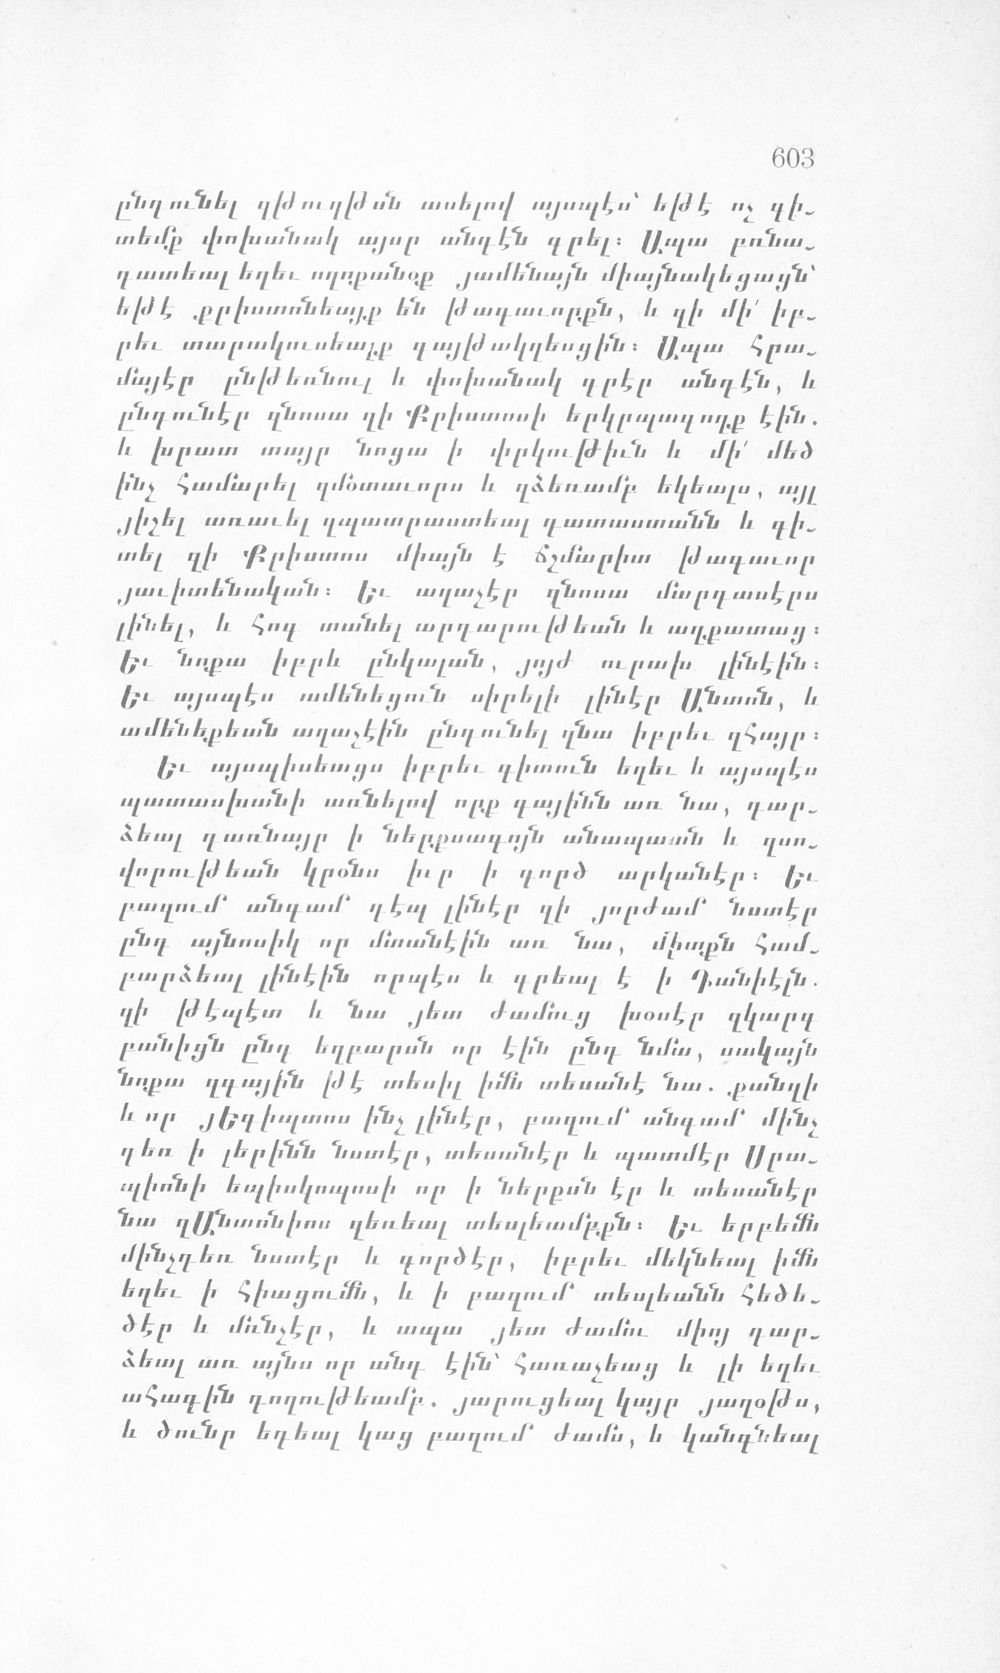 603
ընդունել զթուղթսն ասելով այսպէս՝ եթէ ոչ գի֊
տեմք փոխանակ այսր անդէն գրել։ Ապա բռնա֊
դատեալ եղեւ ողոքանօք յամենայն միայնակեցացն՝
եթէ քրիստոնեայք են թագաւորքն, և զի մի՛ իբ֊
րեւ տարակուսեալք գայթակղեսցին։ Ապա հրա֊
մայէր ընթեռնուլ և փոխանակ գրէր անդէն, և
ընդունէր զնոսա զի Քրիստոսի երկրպագողք էին.
և խրատ տայր նոցա ի փրկութիւն և մի՛ մեծ
ինչ համարել զմօտաւորս և զձեռամբ եկեալս, այլ
յիշել առաւել զպատրաստեալ դատաստանն և գի֊
տել զի Քրիստոս միայն է ճշմարիտ թագաւոր
յաւիտենական։ Եւ աղաչէր զնոսա մարդասէրս
լինել, և հոգ տանել արդարութեան և աղքատաց։
Եւ նոքա իբրև ընկալան, յոյժ ուրախ լինէին։
Եւ այսպէս ամենեցուն սիրելի լինէր Անտոն, և
ամենեքեան աղաչէին ընդունել զնա իբրեւ զհայր։
Եւ այսպիսեացս իբրեւ գիտուն եղեւ և այսպէս
պատասխանի առնելով որք գայինն առ նա, դար֊
ձեալ դառնայր ի ներքսագոյն անապատն և զսո֊
վորութեան կրօնս իւր ի գործ արկանէր։ Եւ
բազում անգամ դէպ լինէր զի յորժամ նստէր
ընդ այնոսիկ որ մտանէին առ նա, միտքն համ֊
բարձեալ լինէին որպէս և գրեալ է ի Դանիէլն.
զի թէպէտ և նա յետ ժամուց խօսէր զկարգ
բանիցն ընդ եղբարսն որ էին ընդ նմա, սակայն
նոքա զգային թէ տեսիլ իմն տեսանէ նա. քանզի
և որ յԵգիպտոս ինչ լինէր, բազում անգամ մինչ
դեռ ի լերինն նստէր, տեսանէր և պատմէր Սրա֊
պիոնի եպիսկոպոսի որ ի ներքսն էր և տեսանէր
նա զԱնտոնիոս զեռեալ տեսլեամբքն։ Եւ երբեմն
մինչդեռ նստէր և գործէր, իբրեւ մեկնեալ իմն
եղեւ ի հիացումն, և ի բազում տեսլեանն հեծե֊
ծէր և մռնչէր, և ապա յետ ժամու միոյ դար֊
ձեալ առ այնս որ անդ էին՝ հառաչեաց և լի եղեւ
ահագին դողութեամբ. յարուցեալ կայր յաղօթս,
և ծունր եդեալ կաց բազում ժամս, և կանգնեալ